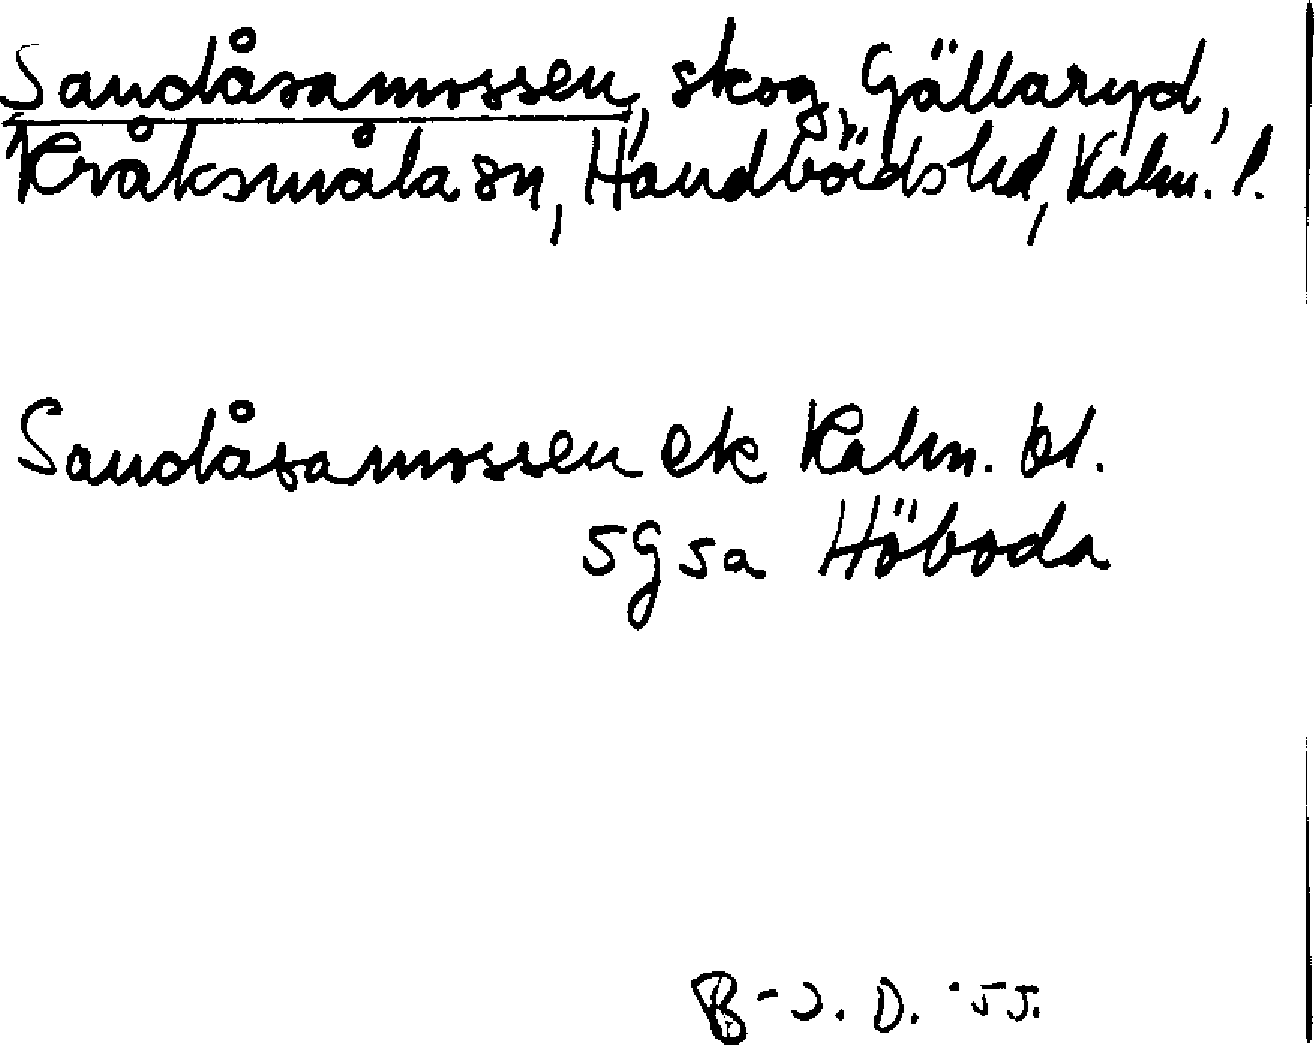 Sandåsamossen, skog, Gällaryd,
Kråksmåla sn, Handbörds hd, Kalm. l.
Sandåsamossen ek Kalm. bl.
5G5a Höboda
B-J. D. -55.